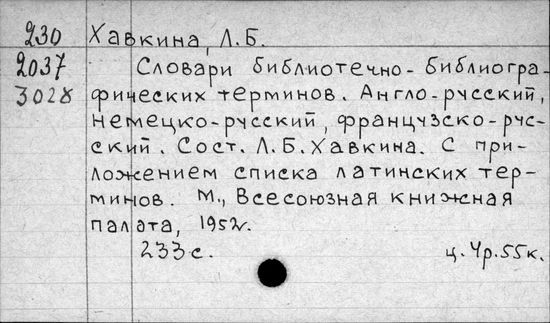 230 Хавкина, Л.Б.
2037 Словари библиотечно-библиогра-
3028 фических терминов. Англо-русский,
немецко-русский, французско-рус-
ский. Сост. Л.Б.Хавкина. С при-
ложением списка латинских тер-
минов. М., Всесоюзная книжная
палата, 1952г.
233с. ц.4р.55к.